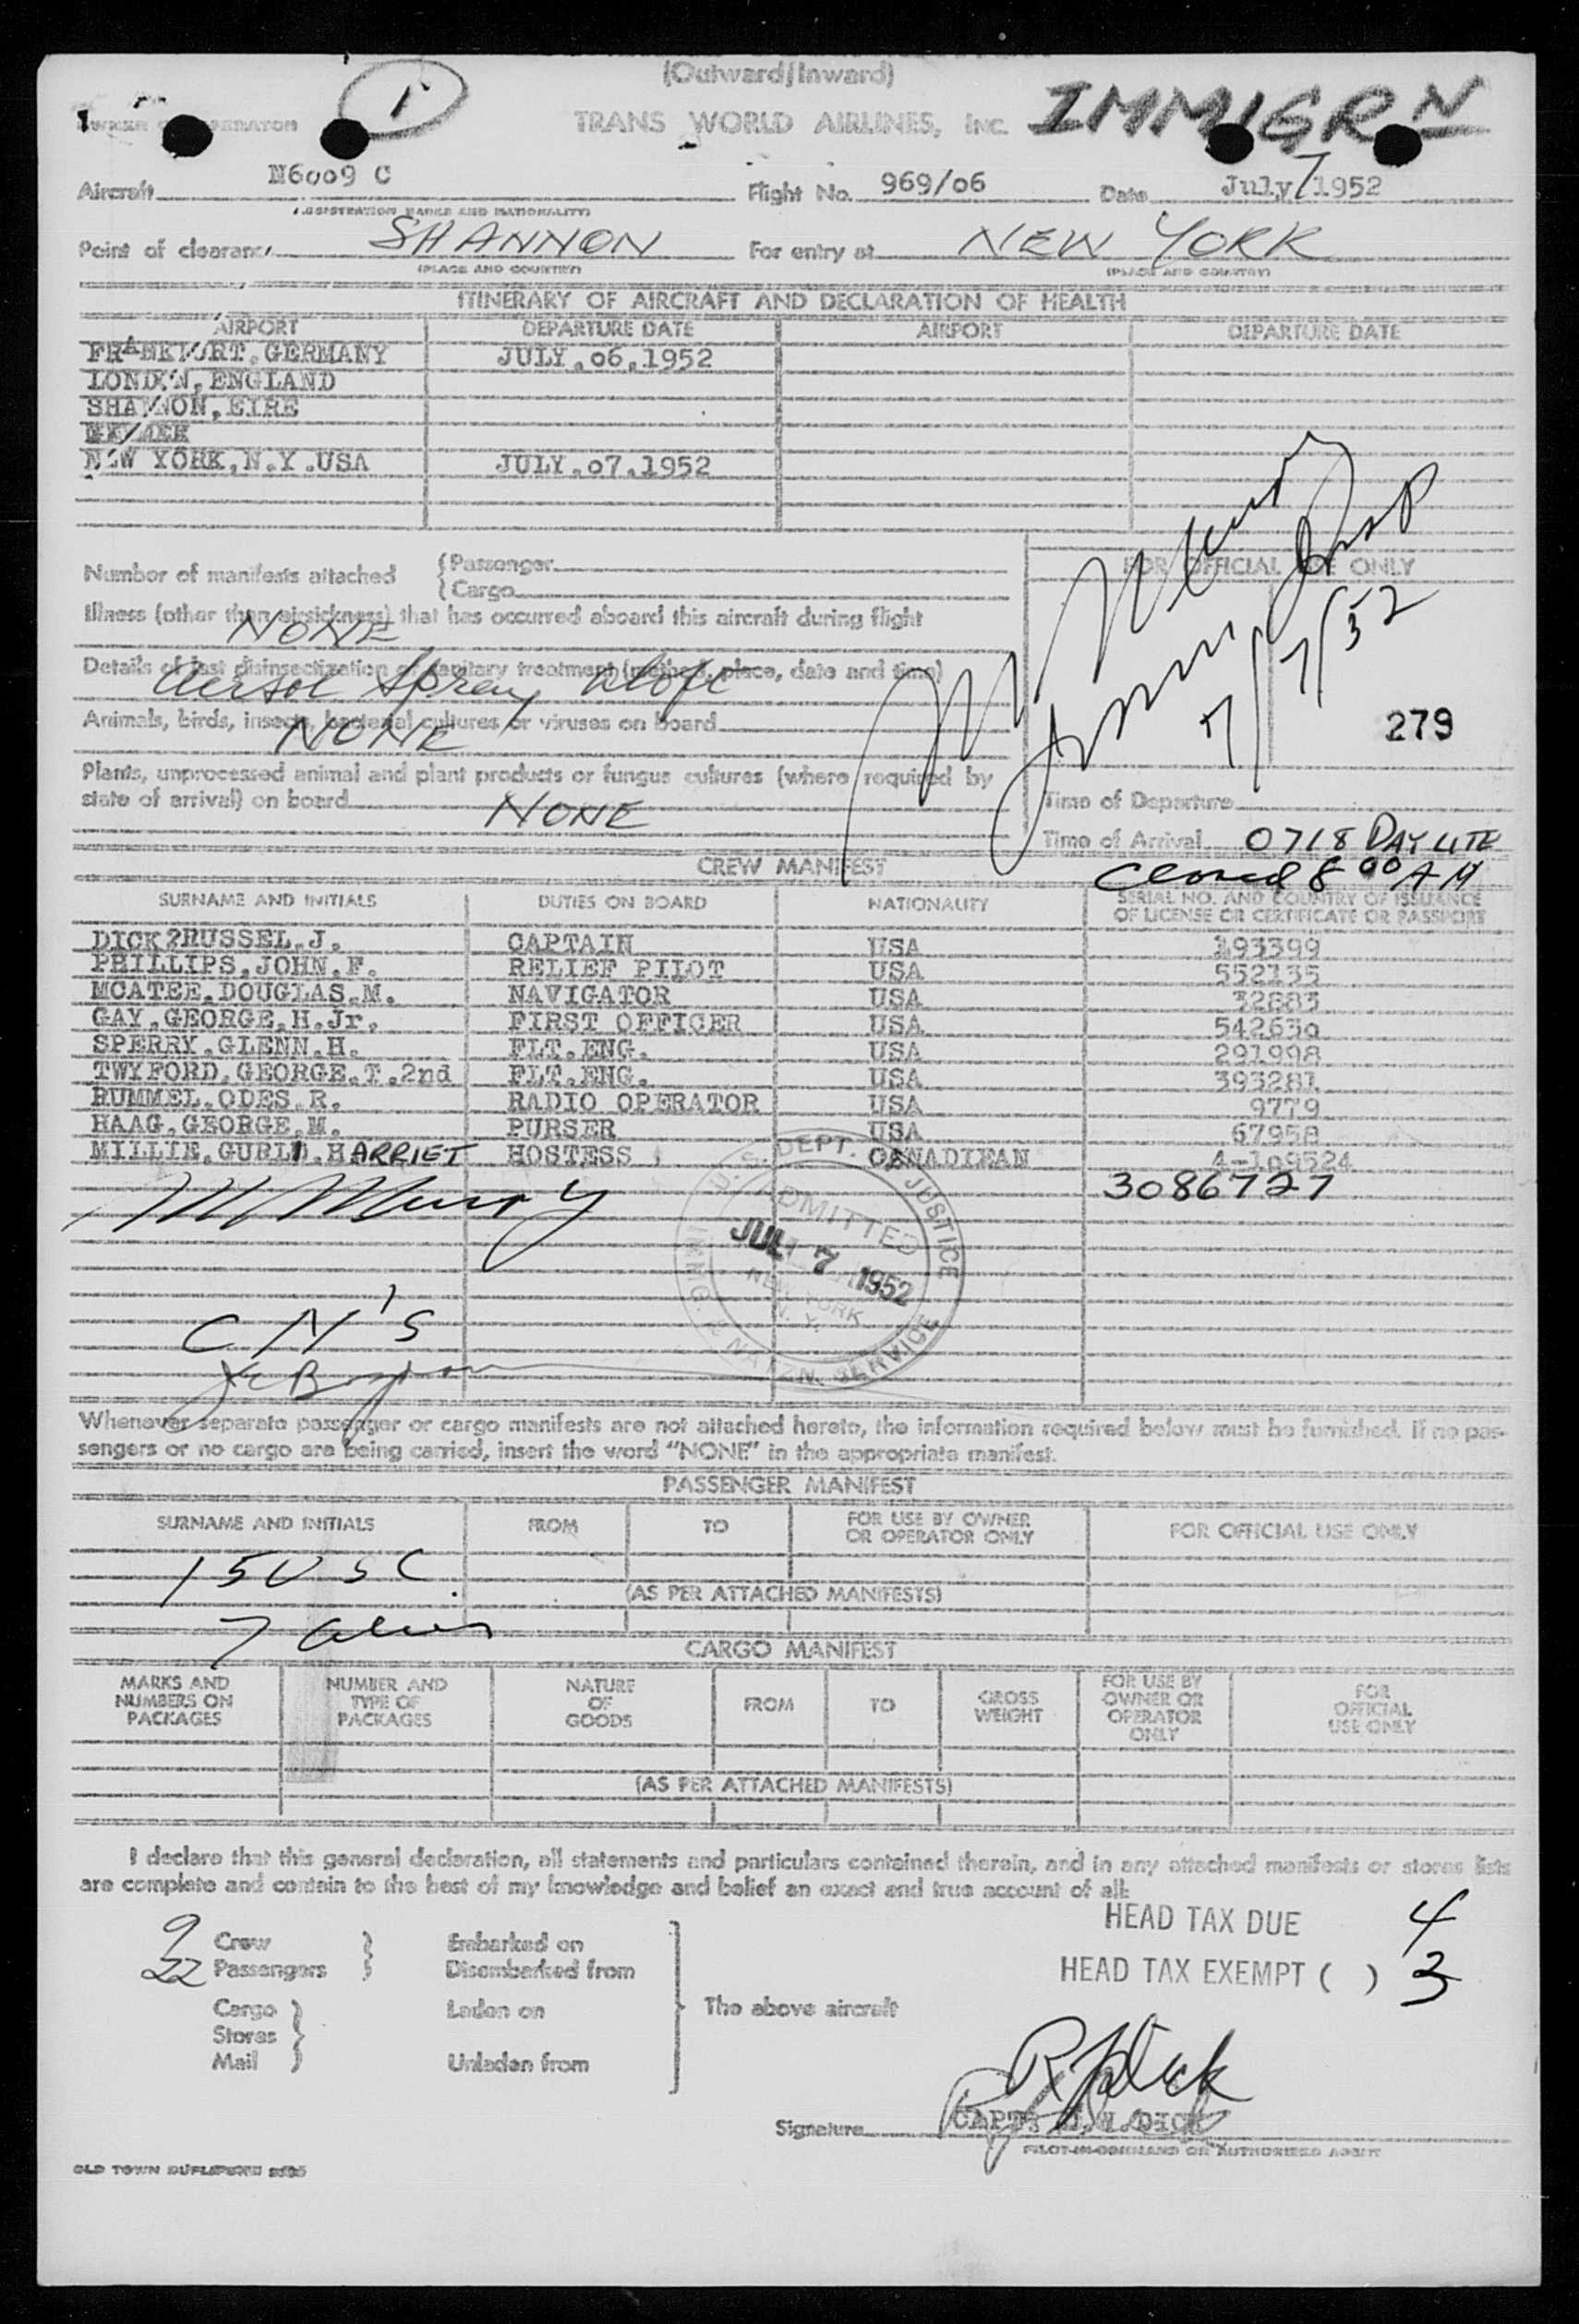 (Outward/Inward)
1
TRANS WORLD AIRLINES, INC.
IMMIGRN
OWNER OR OPERATOR
Aircraft N6009 C Flight No. 969/06 Date July 7 1952
(REGISTRATION MARKS AND NATIONALITY)
Point of clearance SHANNON For entry at NEW YORK
(PLACE AND COUNTRY) (PLACE AND COUNTRY)
ITINERARY OF AIRCRAFT AND DECLARATION OF HEALTH
AIRPORT DEPARTURE DATE AIRPORT DEPARTURE DATE
FRANKFURT.GERMANY JULY.06.1952
LONDON,ENGLAND
SHANNON,EIRE
NEW YORK,N.Y.USA JULY.07.1952
FOR OFFICIAL USE ONLY
Number of manifests attached {Passenger
{Cargo
Illness (other than airsickness) that has occurred aboard this aircraft during flight
NONE
7/7/52
Details of last disinsectization or sanitary treatment (method, place, date and time)
Aersol Spray
Animals, birds, insects, bacterial cultures or viruses on board
NONE
279
Plants, unprocessed animal and plant products or fungus cultures (where required by
state of arrival) on board NONE
Time of Departure
Time of Arrival 0718 DAYLITE
Closed 8 00 AM
CREW MANIFEST
SURNAME AND INITIALS DUTIES ON BOARD NATIONALITY SERIAL NO. AND COUNTRY OF ISSUANCE
OF LICENSE OR CERTIFICATE OR PASSPORT
DICK?RUSSEL.J. CAPTAIN USA 193399
PHILLIPS.JOHN.F. RELIEF PILOT USA 552135
MCATEE.DOUGLAS.M. NAVIGATOR USA 32883
GAY.GEORGE.H.Jr. FIRST OFFICER USA 542630
SPERRY.GLENN.H. FLT.ENG. USA 291998
TWYFORD.GEORGE.T.2nd FLT.ENG. USA 393281
RUMMEL.ODES.R. RADIO OPERATOR USA 9779
HAAG.GEORGE.M. PURSER USA 67958
MILLIE.GURLI.HARRIET HOSTESS CANADIEAN 4-109524
3086727
U.S. DEPT. OF JUSTICE
ADMITTED
JUL 7 1952
NEW YORK
N. Y.
IMMIG. & NATZN. SERVICE
CM'S
Whenever separate passenger or cargo manifests are not attached hereto, the information required below must be furnished. If no pas-
sengers or no cargo are being carried, insert the word "NONE" in the appropriate manifest.
PASSENGER MANIFEST
SURNAME AND INITIALS FROM TO FOR USE BY OWNER
OR OPERATOR ONLY FOR OFFICIAL USE ONLY
15 USC
(AS PER ATTACHED MANIFESTS)
7 aliens
CARGO MANIFEST
MARKS AND
NUMBERS ON
PACKAGES NUMBER AND
TYPE OF
PACKAGES NATURE
OF
GOODS FROM TO GROSS
WEIGHT FOR USE BY
OWNER OR
OPERATOR
ONLY FOR
OFFICIAL
USE ONLY
(AS PER ATTACHED MANIFESTS)
I declare that this general declaration, all statements and particulars contained therein, and in any attached manifests or stores lists
are complete and contain to the best of my knowledge and belief an exact and true account of all:
HEAD TAX DUE 4
9 Crew } Embarked on
22 Passengers } Disembarked from
HEAD TAX EXEMPT ( ) 3
Cargo } Laden on The above aircraft
Stores }
Mail } Unladen from
R J Dick
Signature CAPT. R.J.DICK
PILOT-IN-COMMAND OR AUTHORIZED AGENT
OLD TOWN